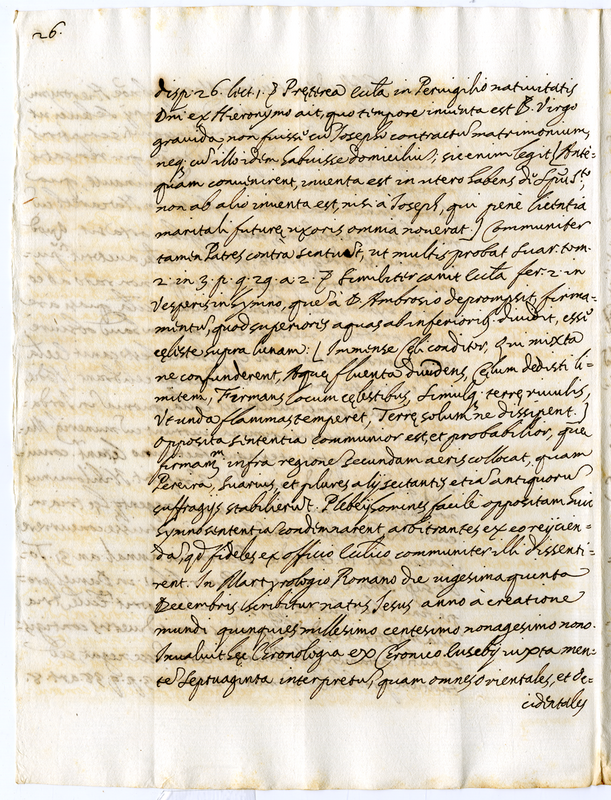 26.
disp. 26. sect. 1. § Pręterea Eccl̃a in Pervigilio nativitatis
Dnĩ ex Hieronymo ait, quo tempore inventa est B. Virgo
gravida non fuisse cũ Joseph contractũ matrimoniũ,
neq; cũ illo idem habuisse domiciliũ, sic enim legit [Ante-
quam convenirent, inventa est in utero habens de Spũ Sto,
non ab alio inventa est, nisi a Joseph, qui penè licentia
maritali futurę uxoris omnia noverat.] Communiter
tamen Patres contrà sentiũt, ut multis probat Suar. tom.
2. in 3. p. q. 29. a. 2. § Similiter canit Eccl̃a fer. 2. in
Vesperis in hymno, quẽ à D. Ambrosio deprompsit, firma-
mentũ, quod superiores aquas ab inferiorib; dividit, essè
cęleste supra lunam: [Immense Cęli conditor, Qui mixta
ne confunderent, Aquę fluenta dividens, Cęlum dedisti li-
mitem, Firmans locum cęlestibus, Simulq; terrę rivulis,
Ut unda flammas temperet, Terrę solum ne dissipent.]
Opposita sententia communior est, et probabilior, quę
firmamm infra regione secundam aeris collocat, quam
Pereira, Suarius, et plures alij sectantis etiã antiquorũ
suffragijs stabilierũt. Plebeij homines facilè oppositam huic
hymno sententiã condemnarent, arbitrantes ex eo reijcien-
dã, qd̃ fideles ex officio Eccl̃ico communiter illi dissenti-
rent. In Martyrologio Romano die vigesima quinta
Decembris scribitur natus Jesus anno à creatione
mundi quinquies millesimo centesimo nonagesimo nono.
Invaluit hęc Chronologia ex Chronico Eusebij iuxta men-
te Septuaginta interpretũ, quam omnes orientales, et oc-
cidentales